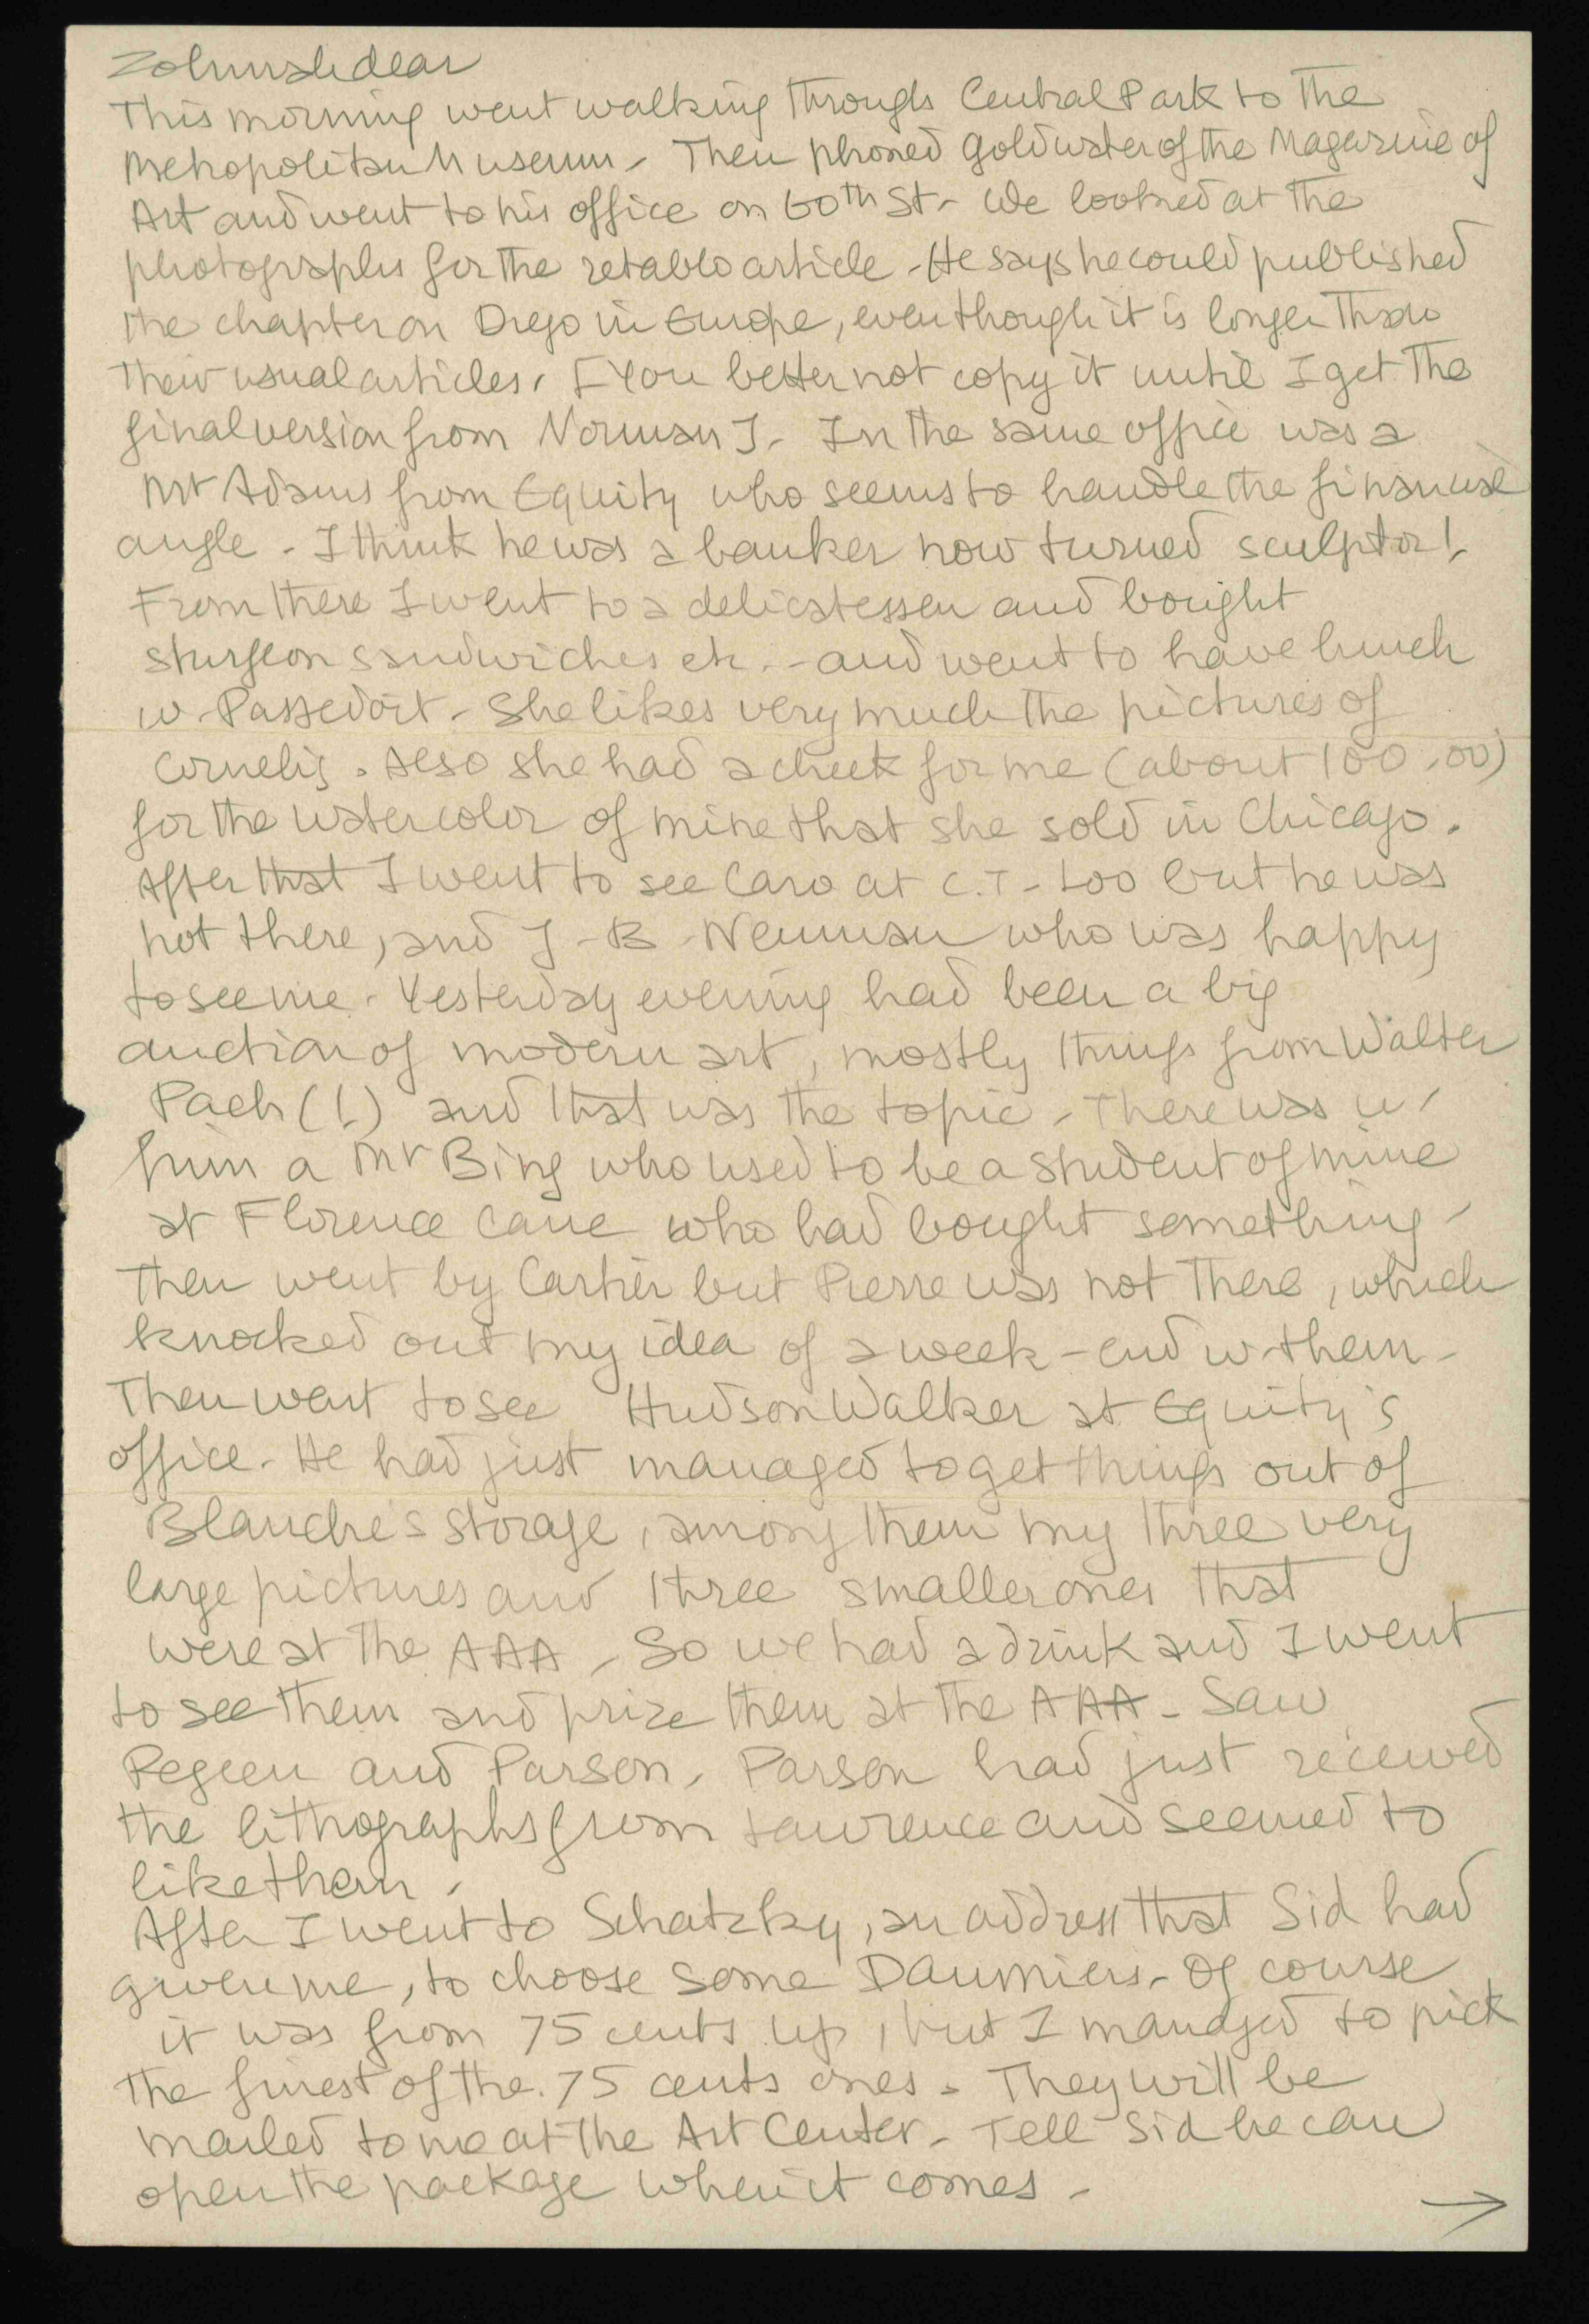 Zohmah dear
This morning went walking through Central Park to the
Metropolitan Museum. Then phoned Goldwater of the Magazine of
Art and went to his office on 60th St. We looked at the
photographs for the retablo article. He says he could published
the chapter on Diego in Europe, even though it is longer than
their usual articles. [You better not copy it until I get the
final version from Norman]. In the same office was a
Mr Adams from Equity who seems to handle the financial
angle. I think he was a banker now turned sculptor!
From there I went to a delicatessen and bought
sturgeon sandwiches etc. - and went to have lunch
w. Passedoit. She likes very much the pictures of
Cornelis. Also she had a check for me (about 100.00)
for the watercolor of mine that she sold in Chicago.
After that I went to see Caro at C.T. too but he was
not there, and J-B-Neuman who was happy
to see me. Yesterday evening had been a big
auction of modern art, mostly things from Walter
Pach (!) and that was the topic. There was w/
him a Mr Bing who used to be a student of mine
at Florence Cane who had bought something.
Then went by Cartier but Pierre was not there, which
knocked out my idea of a week-end w. them.
Then went to see Hudson Walker at Equity's
office. He had just managed to get things out of
Blanche's storage, among them my three very
large pictures and three smaller ones that
were at the AAA. So we had a drink and I went
to see them and prize them at the AAA. Saw
Pegeen and Parson. Parson had just received
the lithographs from Lawrence and seemed to
like them.
After I went to Schatzky, an address that Sid had
given me, to choose some Daumiers. Of course
it was from 75 cents up, but I managed to pick
the finest of the 75 cents ones. They will be
mailed to me at the Art Center. Tell Sid he can
open the package when it comes.
→